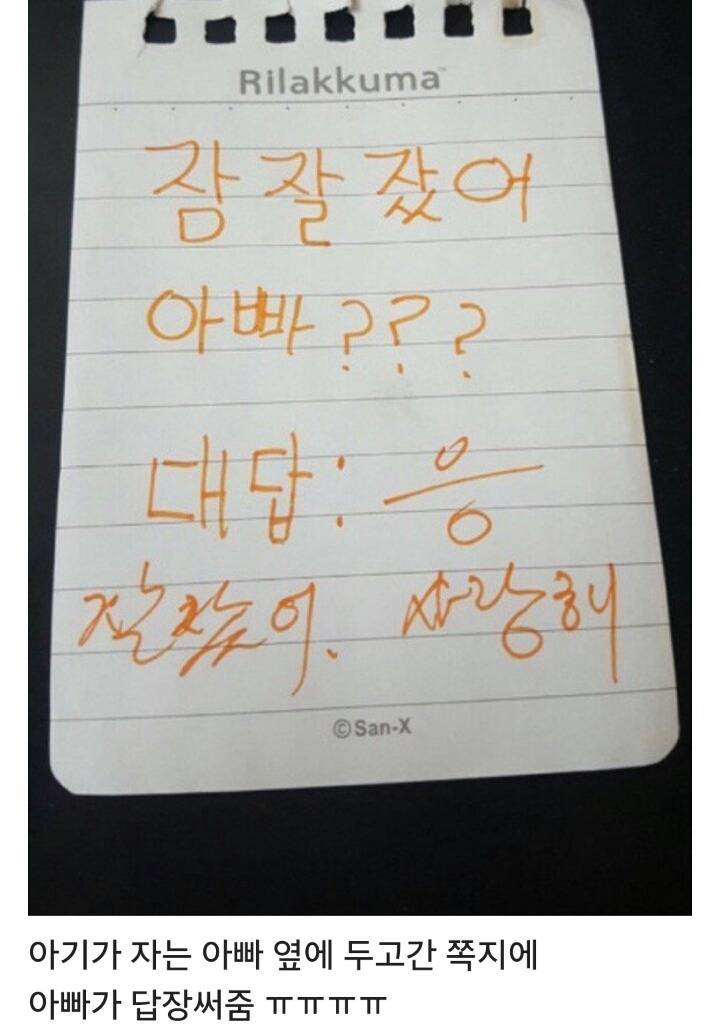 Rilakkuma™
잠 잘 잤어
아빠???
대답: 응
잘 잤어. 사랑해
©San-X
아기가 자는 아빠 옆에 두고간 쪽지에
아빠가 답장써줌 ㅠㅠㅠㅠ